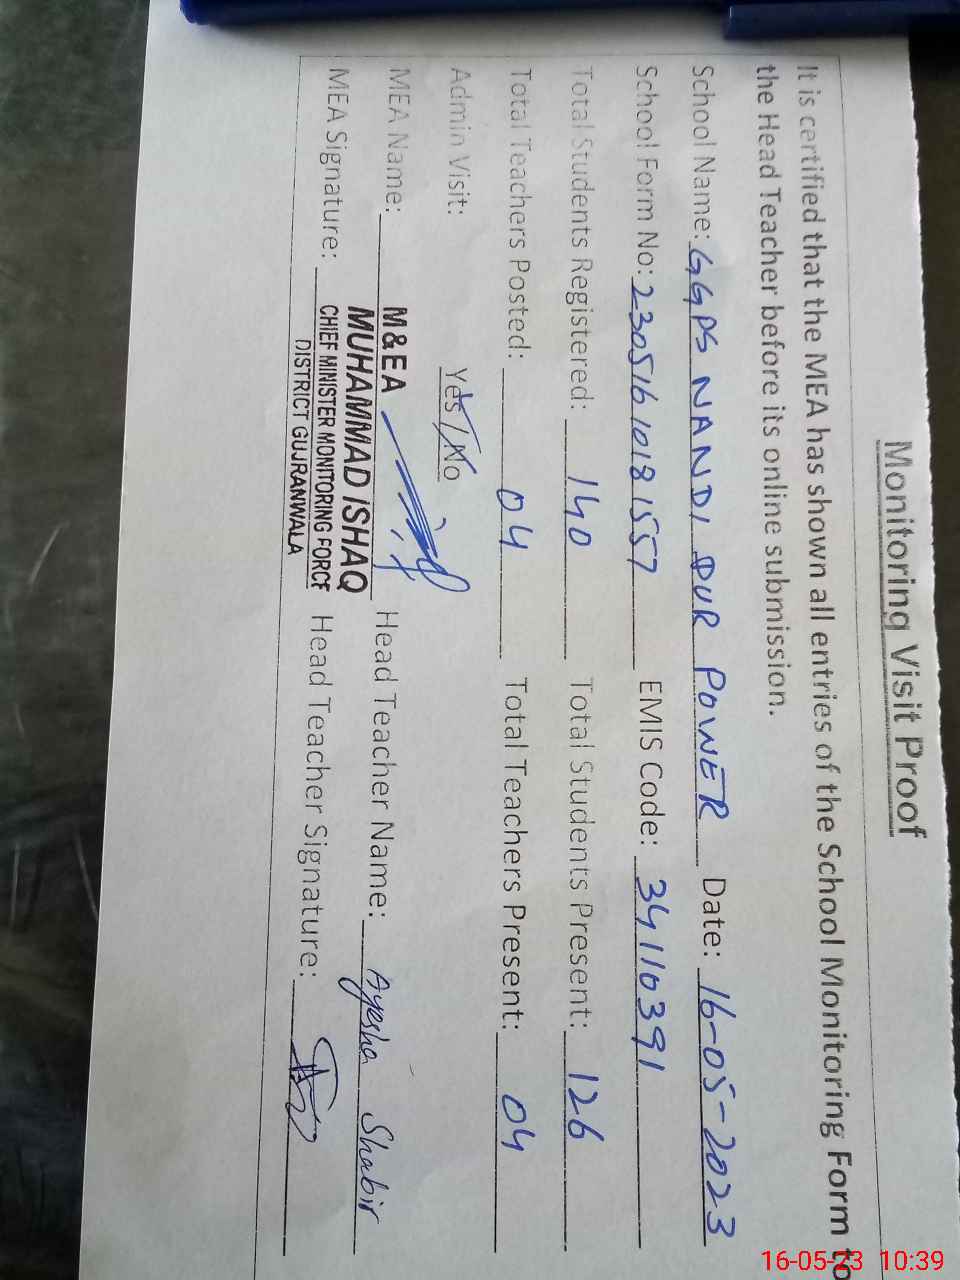 Monitoring Visit Proof
It is certified that the MEA has shown all entries of the School Monitoring Form to
the Head Teacher before its online submission.
School Name: GGPS NANDI PUR POWER Date: 16-05-2023
School Form No: 23051610181557 EMIS Code: 34110391
Total Students Registered: 140 Total Students Present: 126
Total Teachers Posted: 04 Total Teachers Present: 04
Admin Visit: Yes / No
MEA Name: M&EA Head Teacher Name: Ayesha Shabir
MUHAMMAD ISHAQ
MEA Signature: CHIEF MINISTER MONITORING FORCE Head Teacher Signature:
DISTRICT GUJRANWALA
16-05-23 10:39